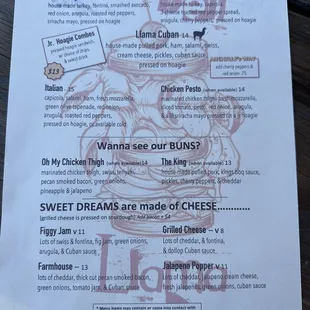 house-made turkey, fontina, smashed avocado,
red onion, arugula, roasted red peppers,
sriracha mayo, pressed on hoagie
house made turkey, capicola,
arugula, cherry peppers,
pressed on hoagie
Jr. Hoagie Combos
pressed hoagie sandwich,
$13
Llama Cuban 14
house-made pulled pork, ham, salami, swiss,
cream cheese, pickles, cuban sauce
pressed on hoagie
add cherry peppers &
red onion .75
Italian 15
capicola, salami, ham, fresh mozzarella,
green olive tapenade, red onion,
arugula, roasted red peppers,
pressed on hoagie, or available cold
Chicken Pesto (when available) 14
marinated chicken thigh, fresh mozzarella,
sliced tomato, pesto, red onion, arugula,
& a lil sriracha mayo pressed on a hoagie
Wanna see our BUNS?
Oh My Chicken Thigh (when available) 14
marinated chicken thigh, swiss, teriyaki,
pecan smoked bacon, green onions,
pineapple & jalapeno
The King (when available) 13
house made pulled pork, kings bbq sauce,
pickles, cherry peppers, & cheddar
SWEET DREAMS are made of CHEESE............
(grilled cheese is pressed on sourdough) Add
Figgy Jam V 11
Lots of swiss & fontina, fig jam, green onions,
arugula, & Cuban sauce
Grilled Cheese – V 8
Lots of cheddar, & fontina,
& dollop Cuban sauce
Farmhouse – 13
lots of cheddar, thick cut pecan smoked bacon,
green onions, tomato jam, & Cuban sauce
Jalapeno Popper V 11
Lots of cheddar, jalapeno cream cheese,
fresh jalapeno, green onions, cuban sauce
Llama
* Many items may contain or come into contact with